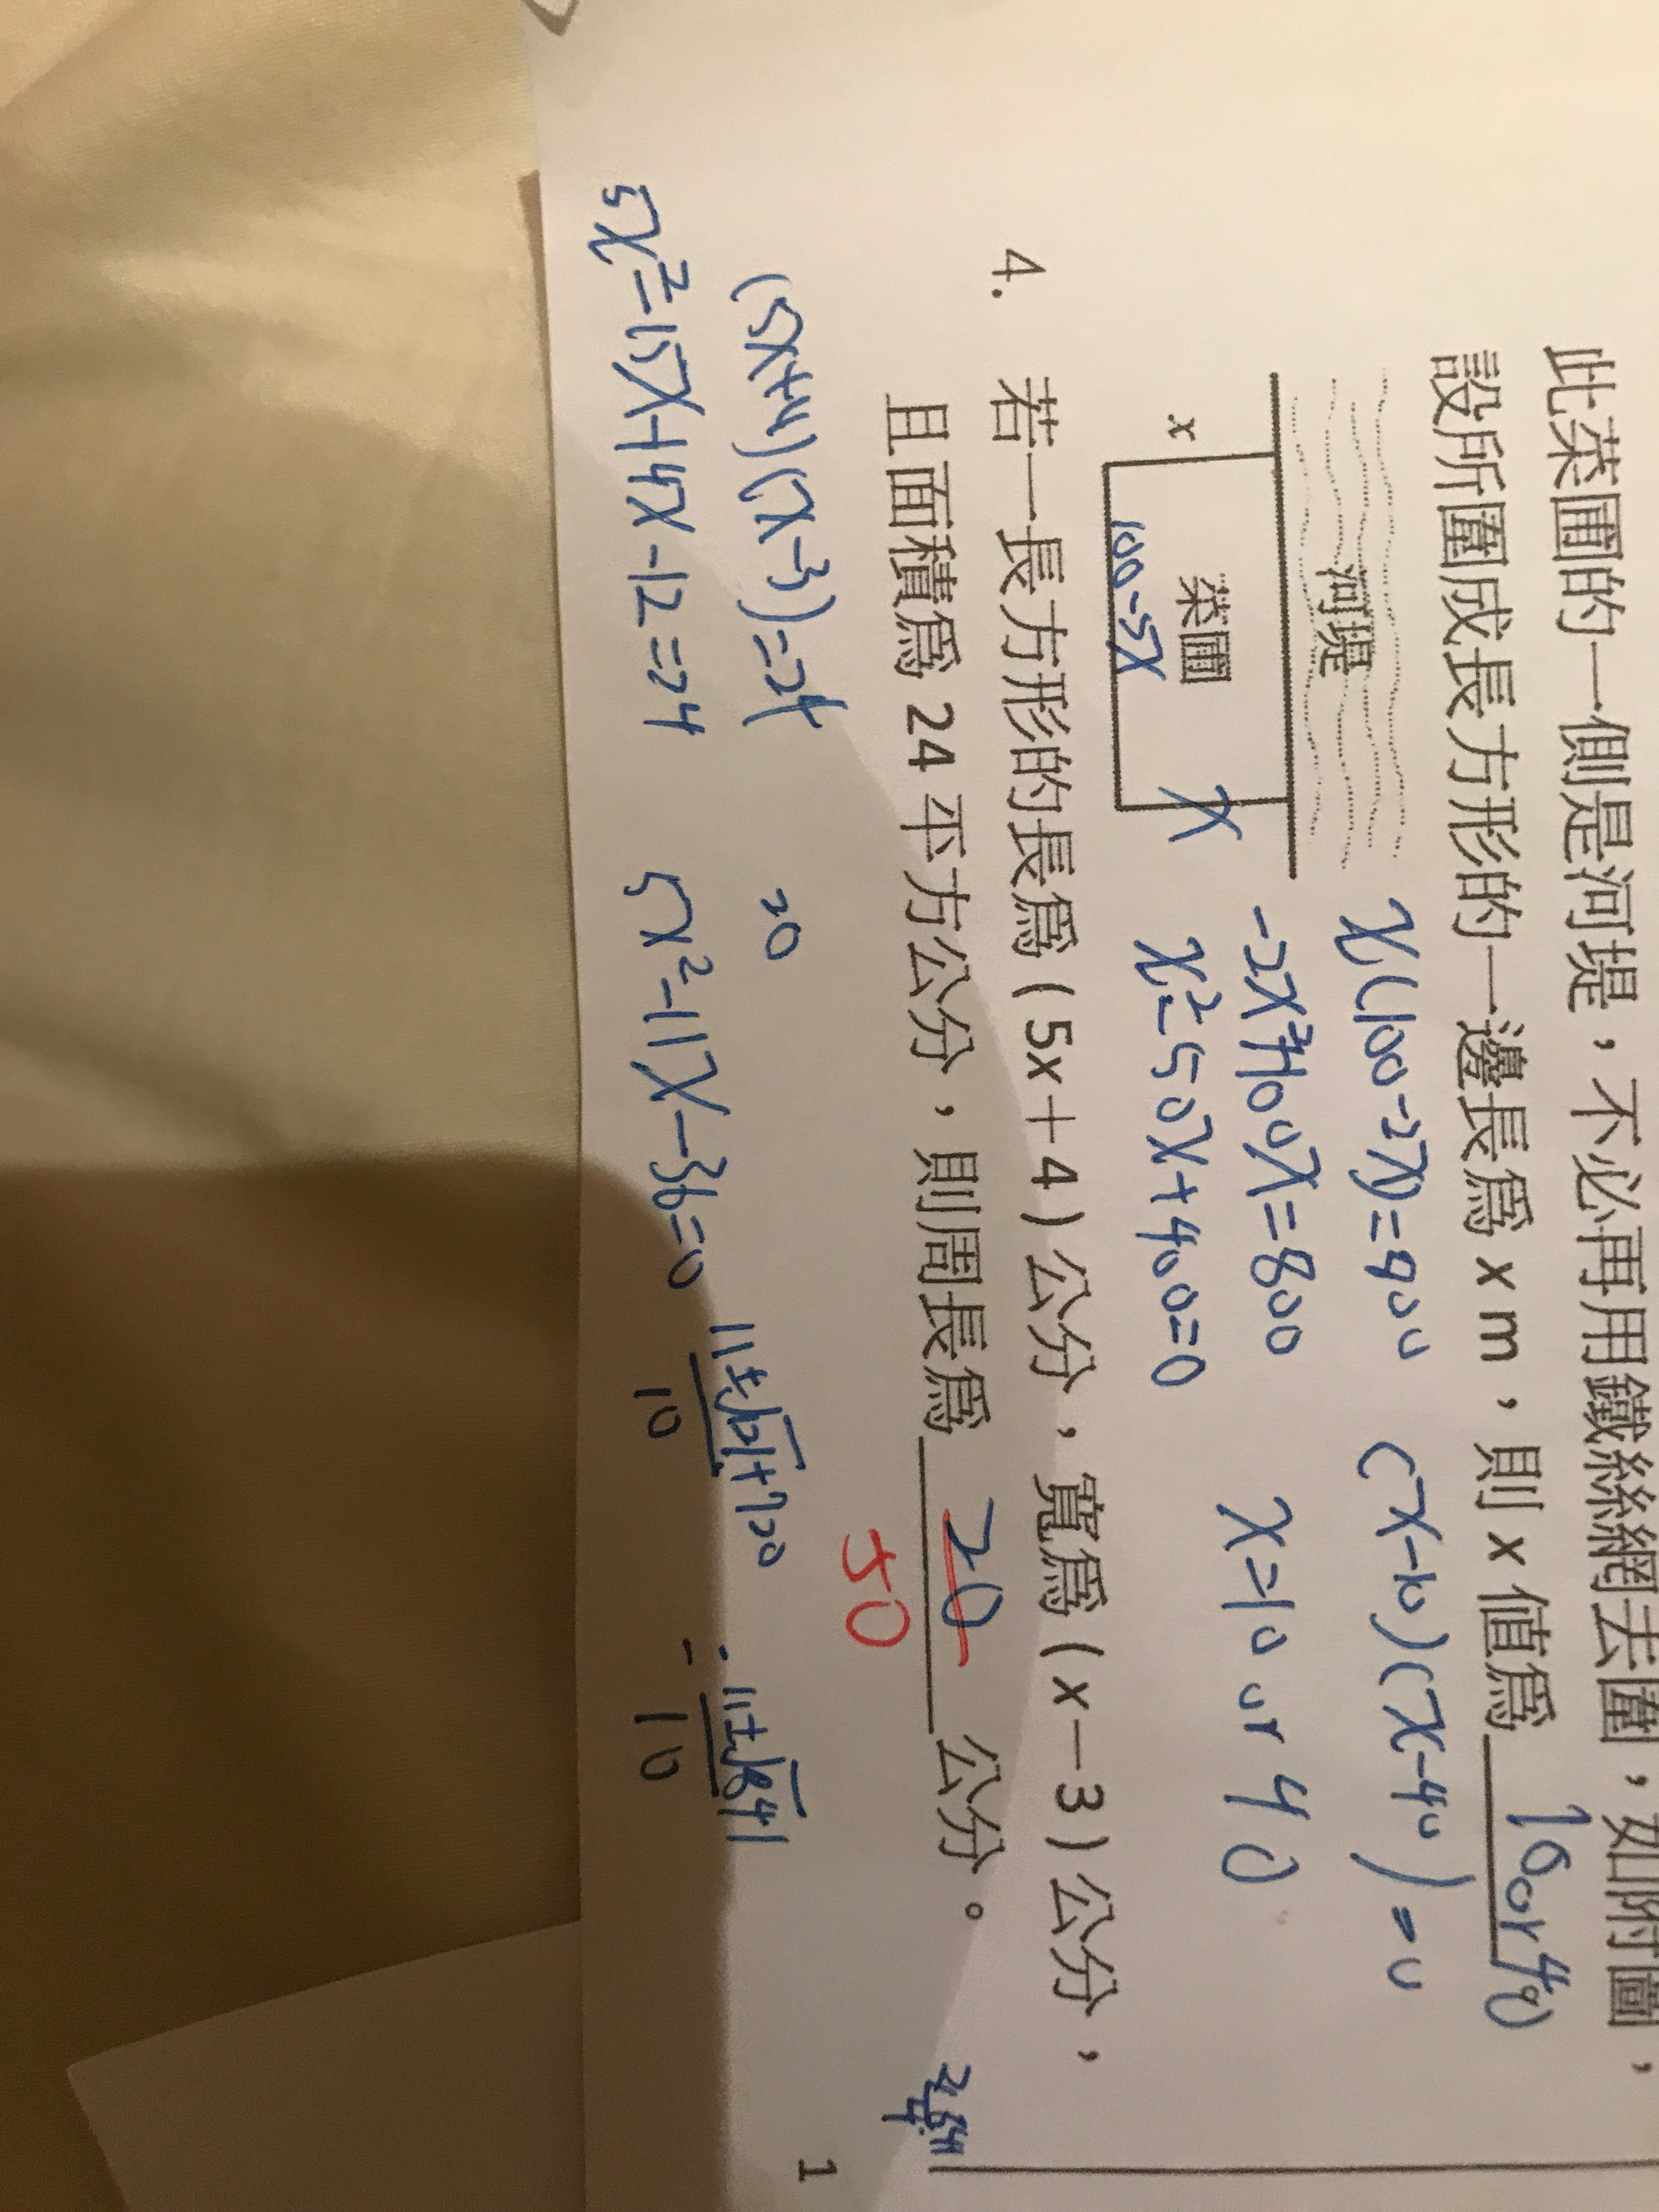 此菜圃的一側是河堤，不必再用鐵絲網去圍，如附圖，
設所圍成長方形的一邊長為 x m，則 x 值為 10or40
河堤
菜圃
x
100-5x
x
x(100-2x)=800
-2x²+100x=800
x²-50x+400=0
(x-10)(x-40)=0
x=10 or 40
4. 若一長方形的長為 ( 5x＋4 ) 公分，寬為 ( x－3 ) 公分，
且面積為 24 平方公分，則周長為 20 公分。
50
(5x+4)(x-3)=24
20
5x²-15x+4x-12=24
5x²-11x-36=0
11±√121+720
10
11±√841
10
1